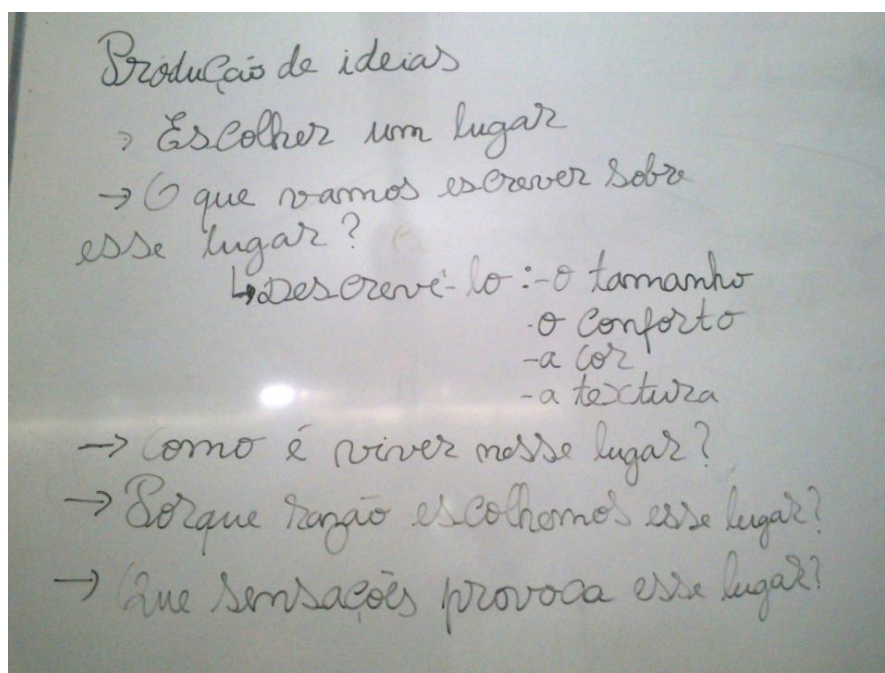 Produção de ideias
→ Escolher um lugar
→ O que vamos escrever sobre
esse lugar?
↳ Descrevê-lo: - o tamanho
- o conforto
- a cor
- a textura
→ Como é viver nesse lugar?
→ Porque razão escolhemos esse lugar?
→ Que sensações provoca esse lugar?